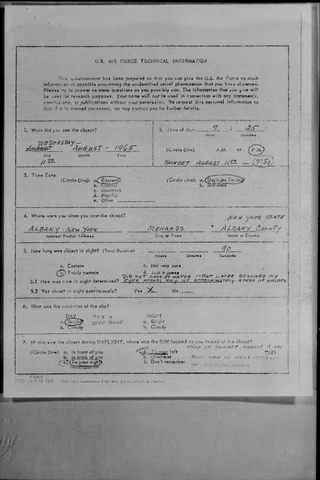 U.S. AIR FORCE TECHNICAL INFORMATION
This questionnaire has been prepared so that you can give the U.S. Air Force as much
information as possible concerning the unidentified aerial phenomenon that you have observed.
Please try to answer as many questions as you possibly can. The information that you give will
be used for research purposes. Your name will not be used in connection with any statements,
conclusions, or publications without your permission. We request this personal information so
that if it is deemed necessary, we may contact you for further details.
1. When did you see the object?
WEDNESDAY
AUGUST - 1965
11th
Day Month Year
2. Time of day: 7 : 25
Hour Minutes
(Circle One): A.M. or P.M.
SUNSET AUGUST 11th - (7:51)
3. Time Zone:
(Circle One): a. Eastern
b. Central
c. Mountain
d. Pacific
e. Other
(Circle One): a. Daylight Saving
b. Standard
4. Where were you when you saw the object?
NEW YORK STATE
ALBANY - NEW YORK MENANDS ALBANY COUNTY
Nearest Postal Address City or Town State or County
5. How long was object in sight? (Total Duration) 90
Hours Minutes Seconds
a. Certain c. Not very sure
b. Fairly certain d. Just a guess
5.1 How was time in duration determined?
DID NOT LOOK AT WATCH - BUT LATER SCANNED MY
5.2 Was object in sight continuously? Yes X No
6. What was the condition of the sky?
DAY NIGHT
a. Bright a. Bright
b. Cloudy b. Cloudy
DEEP BLUE
7. IF you saw the object during DAYLIGHT, where was the SUN located as you looked at the object?
(Circle One): a. In front of you d. To your left
b. In back of you e. Overhead
c. To your right f. Don't remember
TIME OF SUNSET AUGUST 11 WAS
7:51